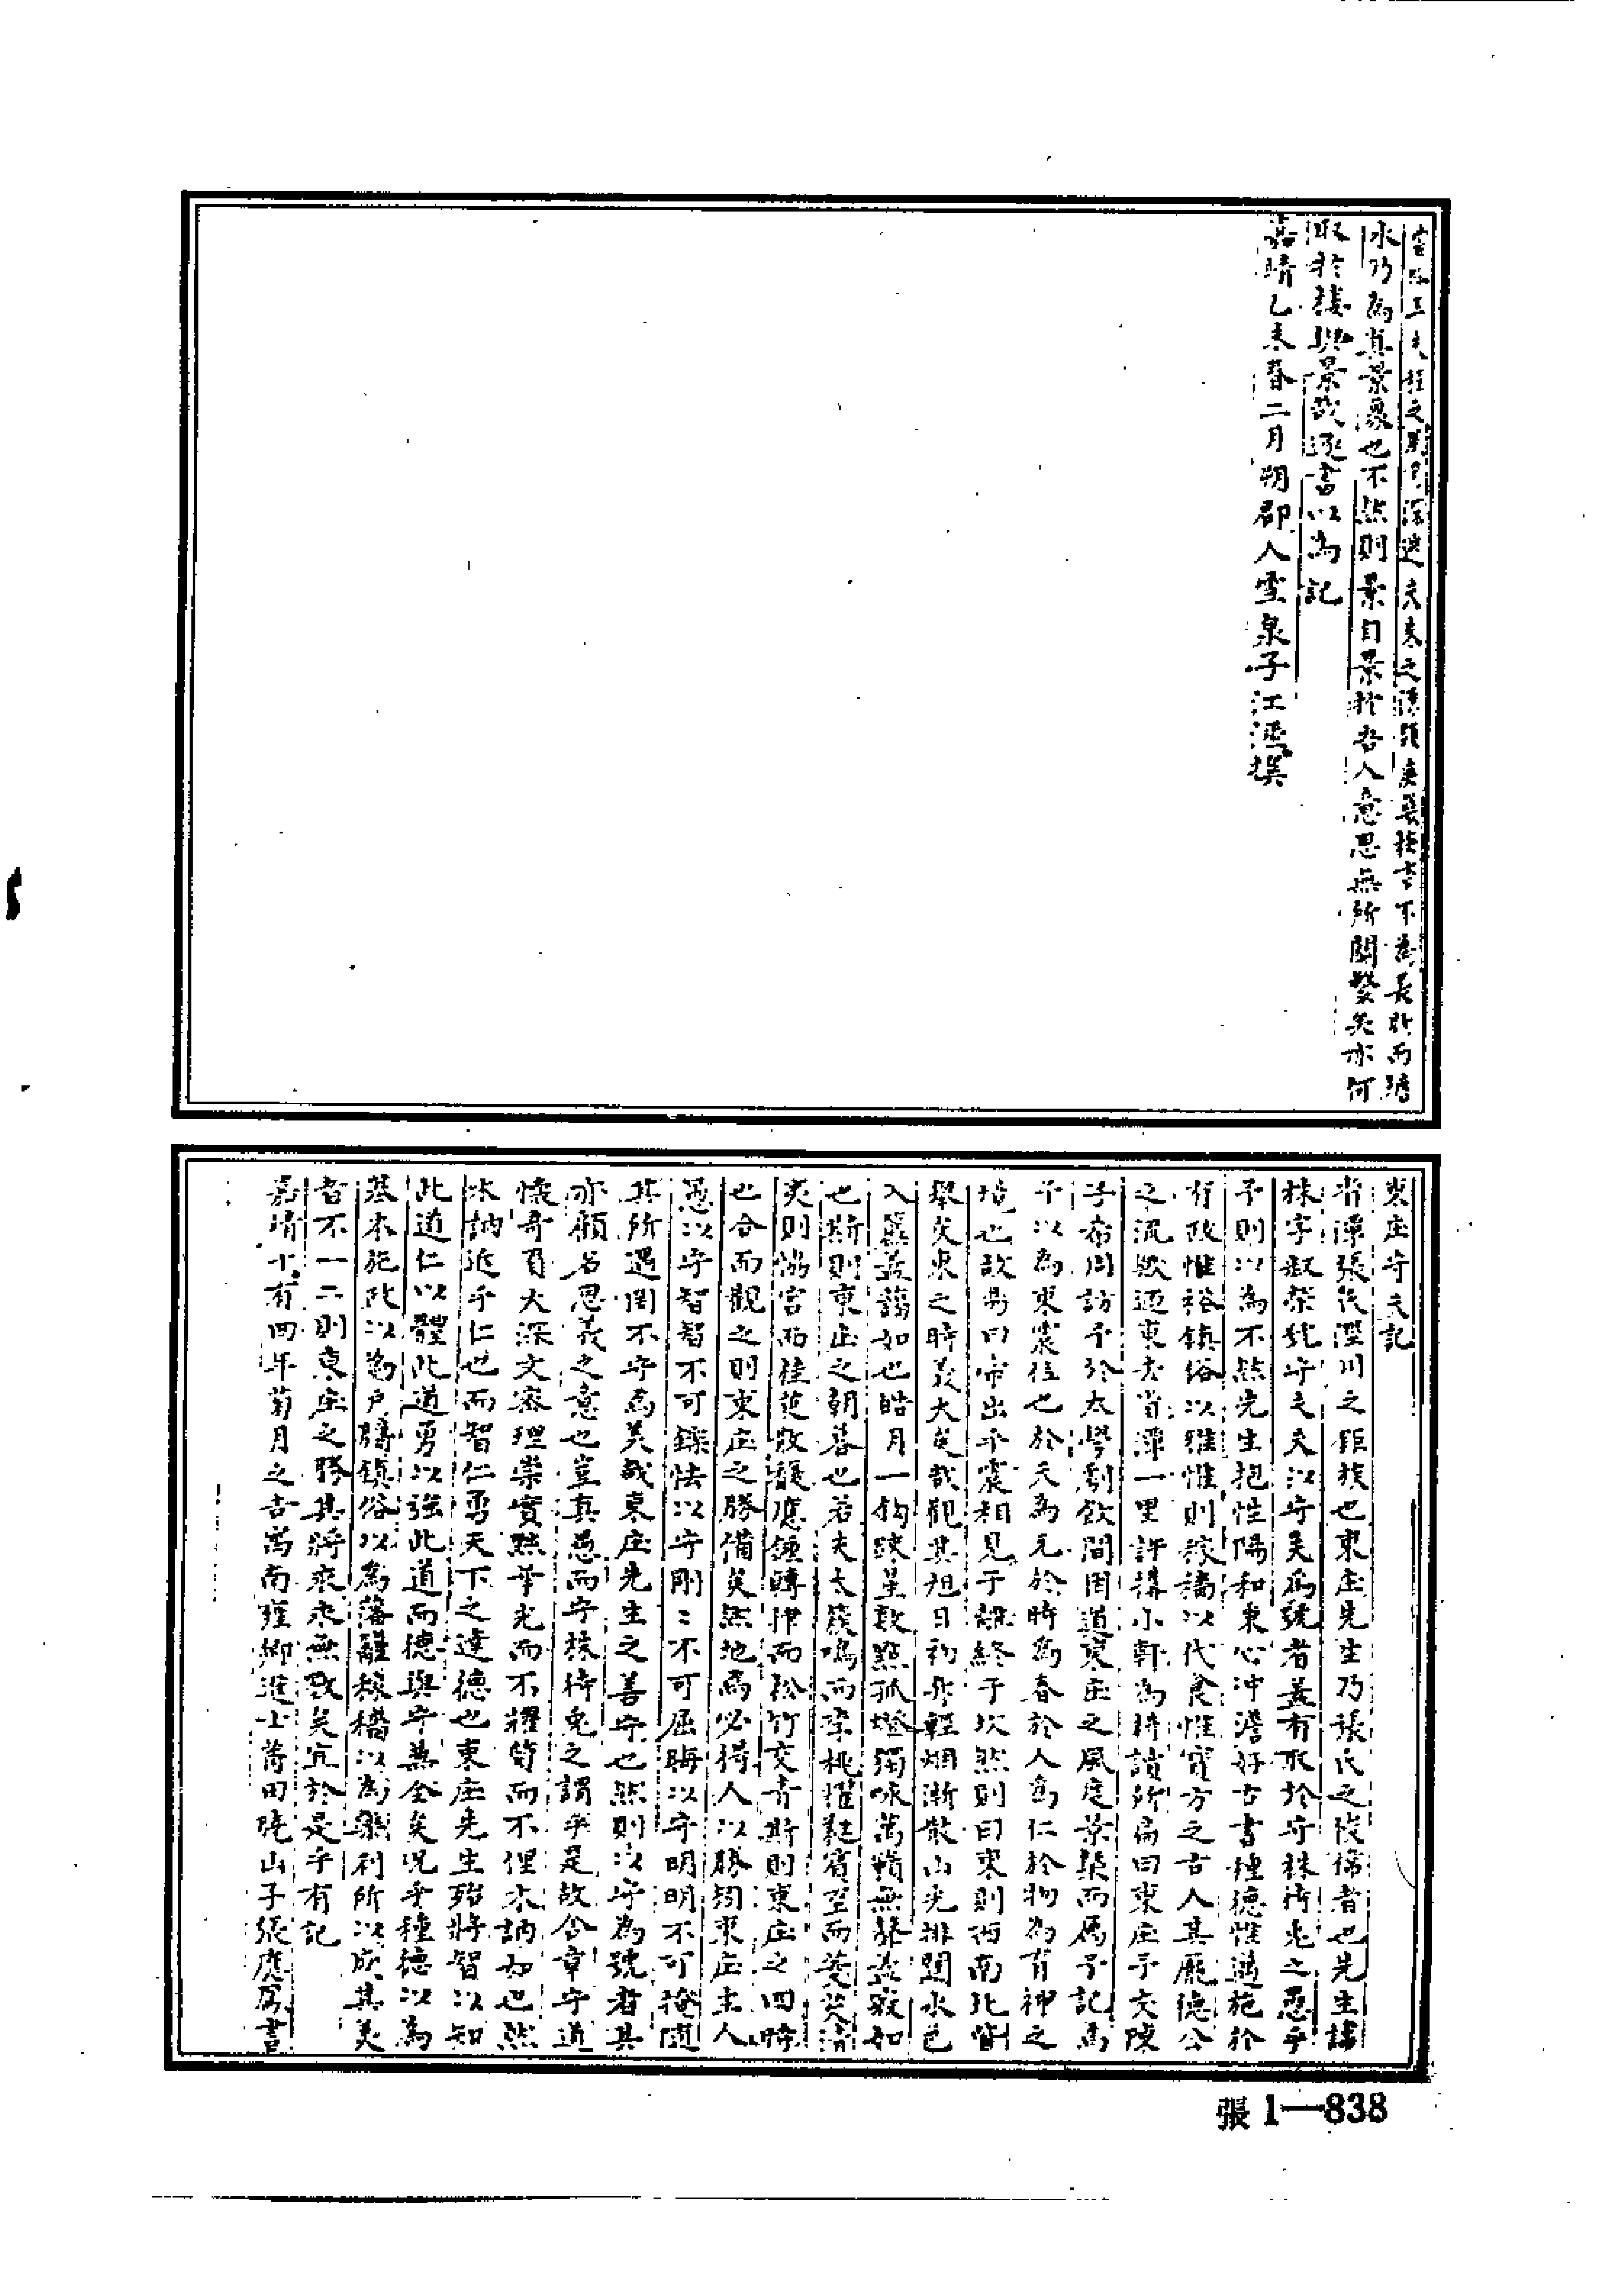 水乃為真景象也不然則景自景於吾人意思無所關繫矣亦何
取於樓與景哉遂書以為記
嘉靖乙未春二月朔郡人雪泉子江撰
東庄守夫記
省潭張氏溼川之鉅族也東庄先生乃張氏之俊偉者也先生諱
株字叔榮號守夫夫以守夫為號者蓋有取於守株待兎之愚乎
予則以為不然先生抱性陽和東心冲澹好古書種德惟邁施於
有政惟裕鎮俗以雅惟則稼穡以代食惟寳方之古人其龐德公
之流歟迺東去省潭一里許搆小軒為耕讀所扁曰東庄予友陳
子布周訪予於太學劇飲間因道東庄之風度景槩而屬予記焉
予以為東震位也於天為元於時為春於人為仁於物為育神之
境也故易曰帝出乎震相見于離終于坎然則曰東則西南北皆
舉矣東之時義大矣哉觀其旭日初升輕烟漸散山光排闥水色
入簾蓋藹如也皓月一鈎踈星數點孤燈獨咏萬籟無聲蓋寂如
也斯則東庄之朝暮也若夫太簇鳴而李桃擢蕤賓至而菱芡清
爽則協宮而桂菊散馥應鍾轉律而松竹交青斯則東庄之四時
也合而觀之則東庄之勝備矣然地為必得人以勝矧東庄主人
愚以守智智不可鑠怯以守剛二不可屈晦以守明明不可掩随
其所遇罔不守為美哉東庄先生之善守也然則以守為號者其
亦顧名思義之意也豈真愚而守株待兎之謂乎是故含章守道
懷奇負大深文密理崇實黙華光而不耀質而不俚木訥如也然
木訥近乎仁也而智仁勇天下之達德也東庄先生殆將智以知
此道仁以體此道勇以強此道而德與守兼全矣况乎種德以為
基本施政以為戸牖鎮俗以為藩籬稼穡以為樂利所以成其美
者不一二則東庄之勝其將來來無斁矣宜於是乎有記
嘉靖十有四年菊月之吉寓南雍鄉進士莆田曉山子張應書
張1—838